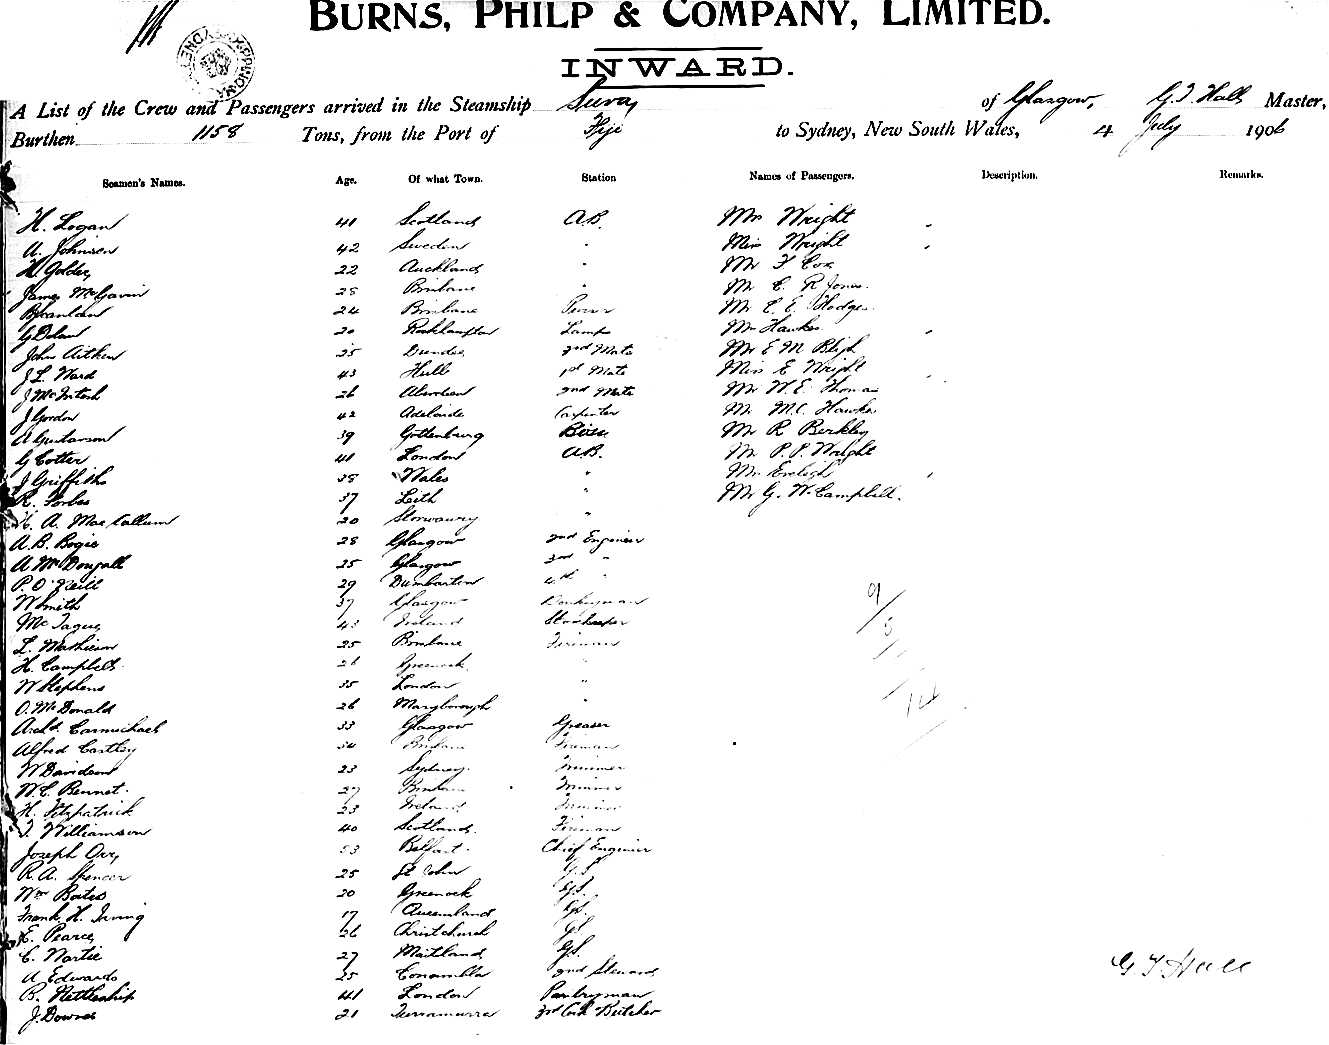 BURNS, PHILP & COMPANY, LIMITED.
INWARD.
A List of the Crew and Passengers arrived in the Steamship Suva, of Glasgow, G. T. Hall Master,
Burthen 1158 Tons, from the Port of Fiji to Sydney, New South Wales, 4 July 1906
Seamen's Names. Age. Of what Town. Station Names of Passengers. Description. Remarks.
H. Logan 41 Scotland A.B. Mrs Wright
A. Johnsen 42 Sweden " Miss Wright
H Golder 22 Auckland " Mr F Cox
James McGavin 28 Brisbane " Mr C. R Jones
24 Brisbane Mr C. E. Hodges
G Dolan 20 Rockhampton Lamps Mrs Hawkes
John Aitken 25 Dundee 2nd Mate Mr E M Bligh
J L. Ward 43 Hull 1st Mate Miss E Wright
J McIntosh 26 Aberdeen 2nd Mate Mr W. E. Thomas
J Gordon 42 Adelaide Carpenter Mr M. C. Hawkes
A Gustavson 39 Gottenburg Bosn Mr R Berkley
G Cotter 41 London A.B. Mr P. P. Wright
J Griffiths 38 Wales " Mrs
R. Forbes 37 Leith " Mr G. W. Campbell.
A. MacCallum 20 Stornaway "
A. B. Bogie 28 Glasgow 2nd Engineer
A McDougall 25 Glasgow 3rd "
P. O'Neill 29 Dumbarton 4th "
W Smith 37 Glasgow Donkeyman
McTague 43 Ireland Storekeeper
L. Mathieson 25 Brisbane Fireman
H. Campbell 26 Greenock "
W Stephens 35 London "
O. McDonald 26 Maryborough "
Archd. Carmichael 33 Glasgow Greaser
Alfred Castley 34 Brisbane Fireman
W Davidson 23 Sydney Trimmer
W. C. Bennet. 27 Brisbane Trimmer
H. Fitzpatrick 23 Ireland Trimmer
J. Williamson 40 Scotland. Fireman
Joseph Orr 53 Belfast. Chief Engineer
R. A. Spencer 25 St John G.S
Wm Bates 20 Greenock G.S.
Frank H. Irving 17 Queensland G.S.
E. Pearce 26 Christchurch G.S
C. Nartie 27 Maitland G.S.
A Edwards 25 Conamble 2nd Steward
B. Nettleship 41 London Pantryman
J. Downes 21 Turramurra 3rd Cook Butcher
9/5
14
G T Hall